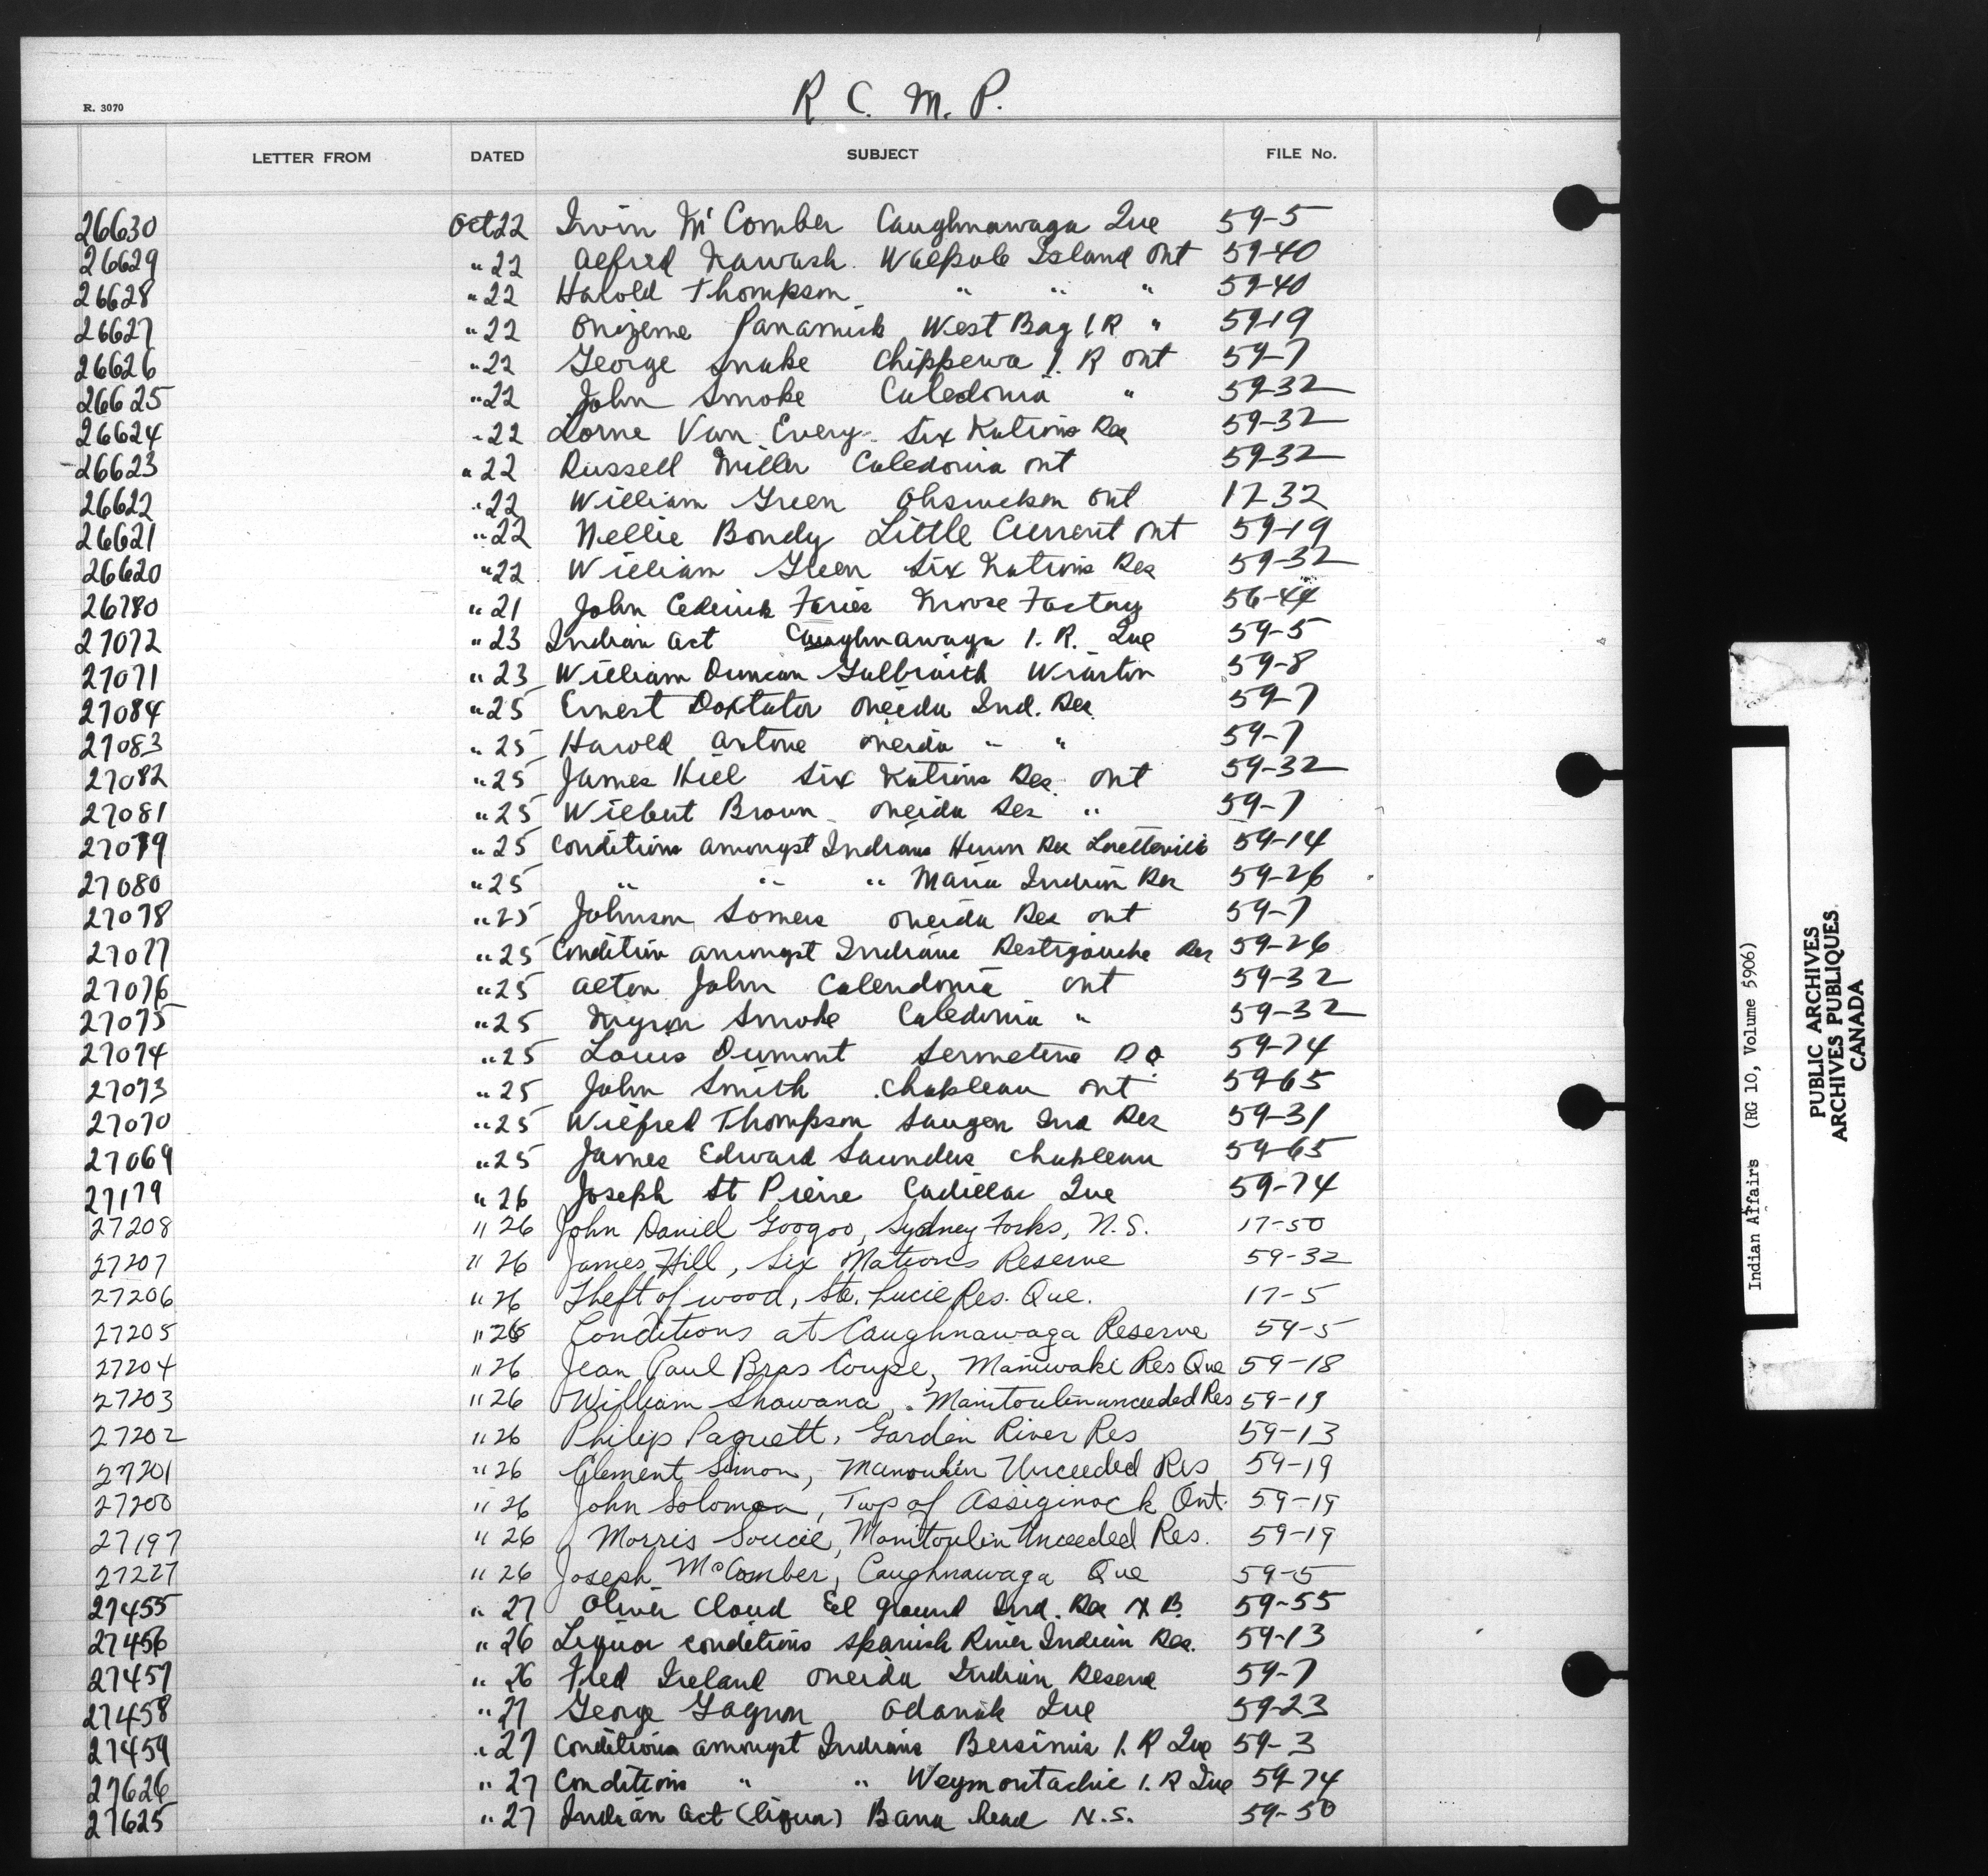 R. C. M. P.
R. 3070
LETTER FROM DATED SUBJECT FILE No.
26630 Oct 22 Irvin Mc Comber Caughnawaga Que 59-5
26629 " 22 Alfred Nawash. Walpole Island Ont 59-40
26628 " 22 Harold Thompson " " " 59-40
26627 " 22 Onizeme Panamick West Bay I.R " 59-19
26626 " 22 George Snake Chippewa I. R Ont 59-7
26625 " 22 John Smoke Caledonia " 59-32
26624 " 22 Lorne Van Every Six Nations Res 59-32
26623 " 22 Russell Miller Caledonia Ont 59-32
26622 " 22 William Green Ohsweken Ont 17-32
26621 " 22 Nellie Bondy Little Current Ont 59-19
26620 " 22 William Green Six Nations Res 59-32
26780 " 21 John Faries Moose Factory 56-44
27072 " 23 Indian Act Caughnawaga I. R. Que 59-5
27071 " 23 William Duncan Galbraith Wiarton 59-8
27084 " 25 Ernest Doxtator Oneida Ind. Res. 59-7
27083 " 25 Harold Antone Oneida " " 59-7
27082 " 25 James Hill Six Nations Res. Ont 59-32
27081 " 25 Wilbert Brown Oneida Res " 59-7
27079 " 25 Conditions amongst Indians Huron Res Loretteville 59-14
27080 " 25 " " " Maria Indian Res 59-26
27078 " 25 Johnson Somers Oneida Res Ont 59-7
27077 " 25 Condition amongst Indians Restigouche Res 59-26
27076 " 25 Alton John Calendonia Ont 59-32
27075 " 25 Myron Smoke Caledonia " 59-32
27074 " 25 Louis Dumont Senneterre P.Q. 59-74
27073 " 25 John Smith Chapleau Ont 59-65
27070 " 25 Wilfred Thompson Saugen Ind Res 59-31
27069 " 25 James Edward Saunders Chapleau 59-65
27179 " 26 Joseph St Pierre Cadillac Que 59-74
27208 " 26 John Daniel Googoo, Sydney Forks, N.S. 17-50
27207 " 26 James Hill, Six Nations Reserve 59-32
27206 " 26 Theft of wood, Ste. Lucie Res. Que. 17-5
27205 " 26 Conditions at Caughnawaga Reserve 59-5
27204 " 26 Jean Paul Bras Coupe, Maniwaki Res Que 59-18
27203 " 26 William Shawana, Manitoulin unceeded Res 59-19
27202 " 26 Philip Paquett, Garden River Res 59-13
27201 " 26 Clement Simon, Manoulin Unceeded Res 59-19
27200 " 26 John Solomon, Twp of Assiginack Ont. 59-19
27197 " 26 Morris Soucie, Manitoulin Unceeded Res. 59-19
27227 " 26 Joseph McComber, Caughnawaga Que 59-5
27455 " 27 Oliver Cloud Eel Ground Ind. Res N B. 59-55
27456 " 26 Liquor conditions Spanish River Indian Res. 59-13
27457 " 26 Fred Ireland Oneida Indian Reserve 59-7
27458 " 27 George Gagnon Odanak Que 59-23
27459 " 27 Conditions amongst Indians Bersimis I. R Que 59-3
27626 " 27 Conditions " " Weymontachie I. R Que 59-74
27625 " 27 Indian Act (liquor) Bara head N.S. 59-50
Indian Affairs (RG 10, Volume 5906)
PUBLIC ARCHIVES
ARCHIVES PUBLIQUES
CANADA